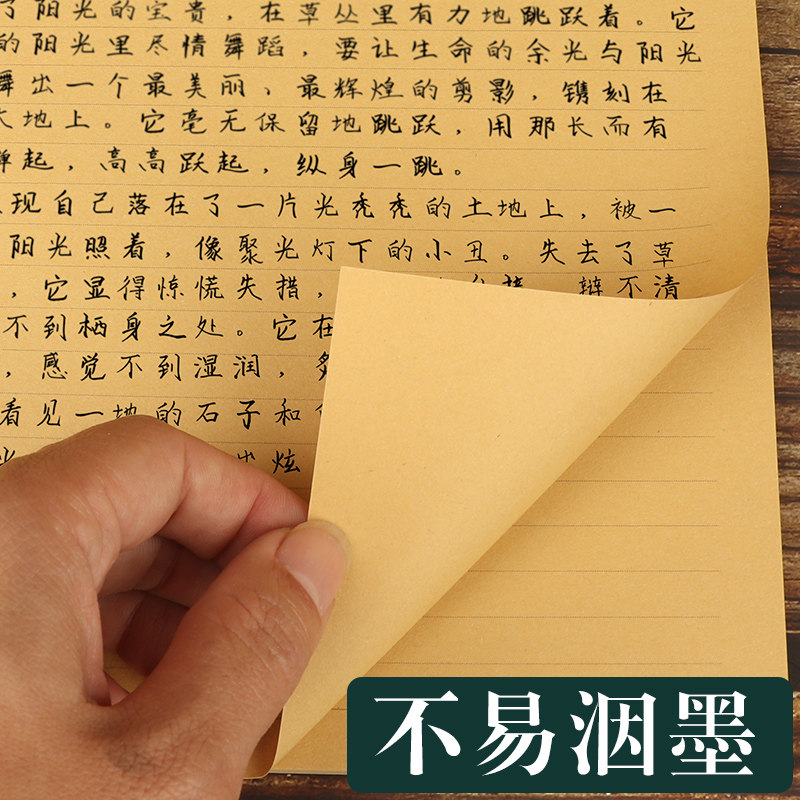 了阳光的宝贵，在草丛里有力地跳跃着。它
的阳光里尽情舞蹈，要让生命的余光与阳光
舞出一个最美丽、最辉煌的剪影，镌刻在
大地上。它毫无保留地跳跃，用那长而有
弹起，高高跃起，纵身一跳。
现自己落在了一片光秃秃的土地上，被一
阳光照着，像聚光灯下的小丑。失去了草
，它显得惊慌失措，辩不清
不到栖身之处。它在
，感觉不到湿润，
看见一地的石子和
炫
不易洇墨